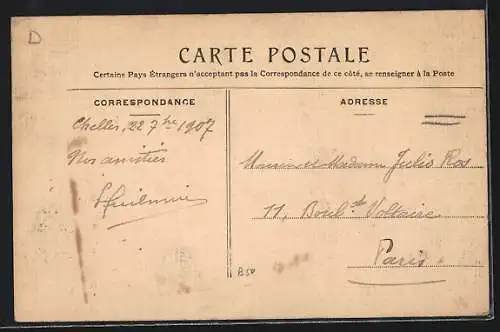 D
CARTE POSTALE
Certains Pays Étrangers n'acceptant pas la Correspondance de ce côté, se renseigner à la Poste
CORRESPONDANCE
ADRESSE
Chelles, 22 7bre 1907
Nos amitiés
Monsieur et Madame Julio Ros
11, Boul.d Voltaire
Paris.
B50